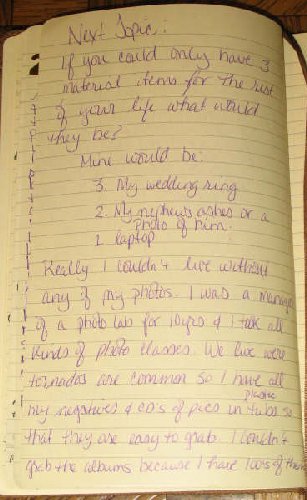 Next Topic:
If you could only have 3
material items for the rest
of your life what would
they be?
Mine would be:
3. My wedding ring
2. My nephews ashes or a
photo of him.
1. laptop
Really I couldn't live without
any of my photos. I was a manager
of a photo lab for 10yrs & I took all
kinds of photo classes. We live were
tornados are common so I have all
my negatives & CD's of pics in plastic tubs so
that they are easy to grab. I couldn't
grab the albums because I have 100's of them